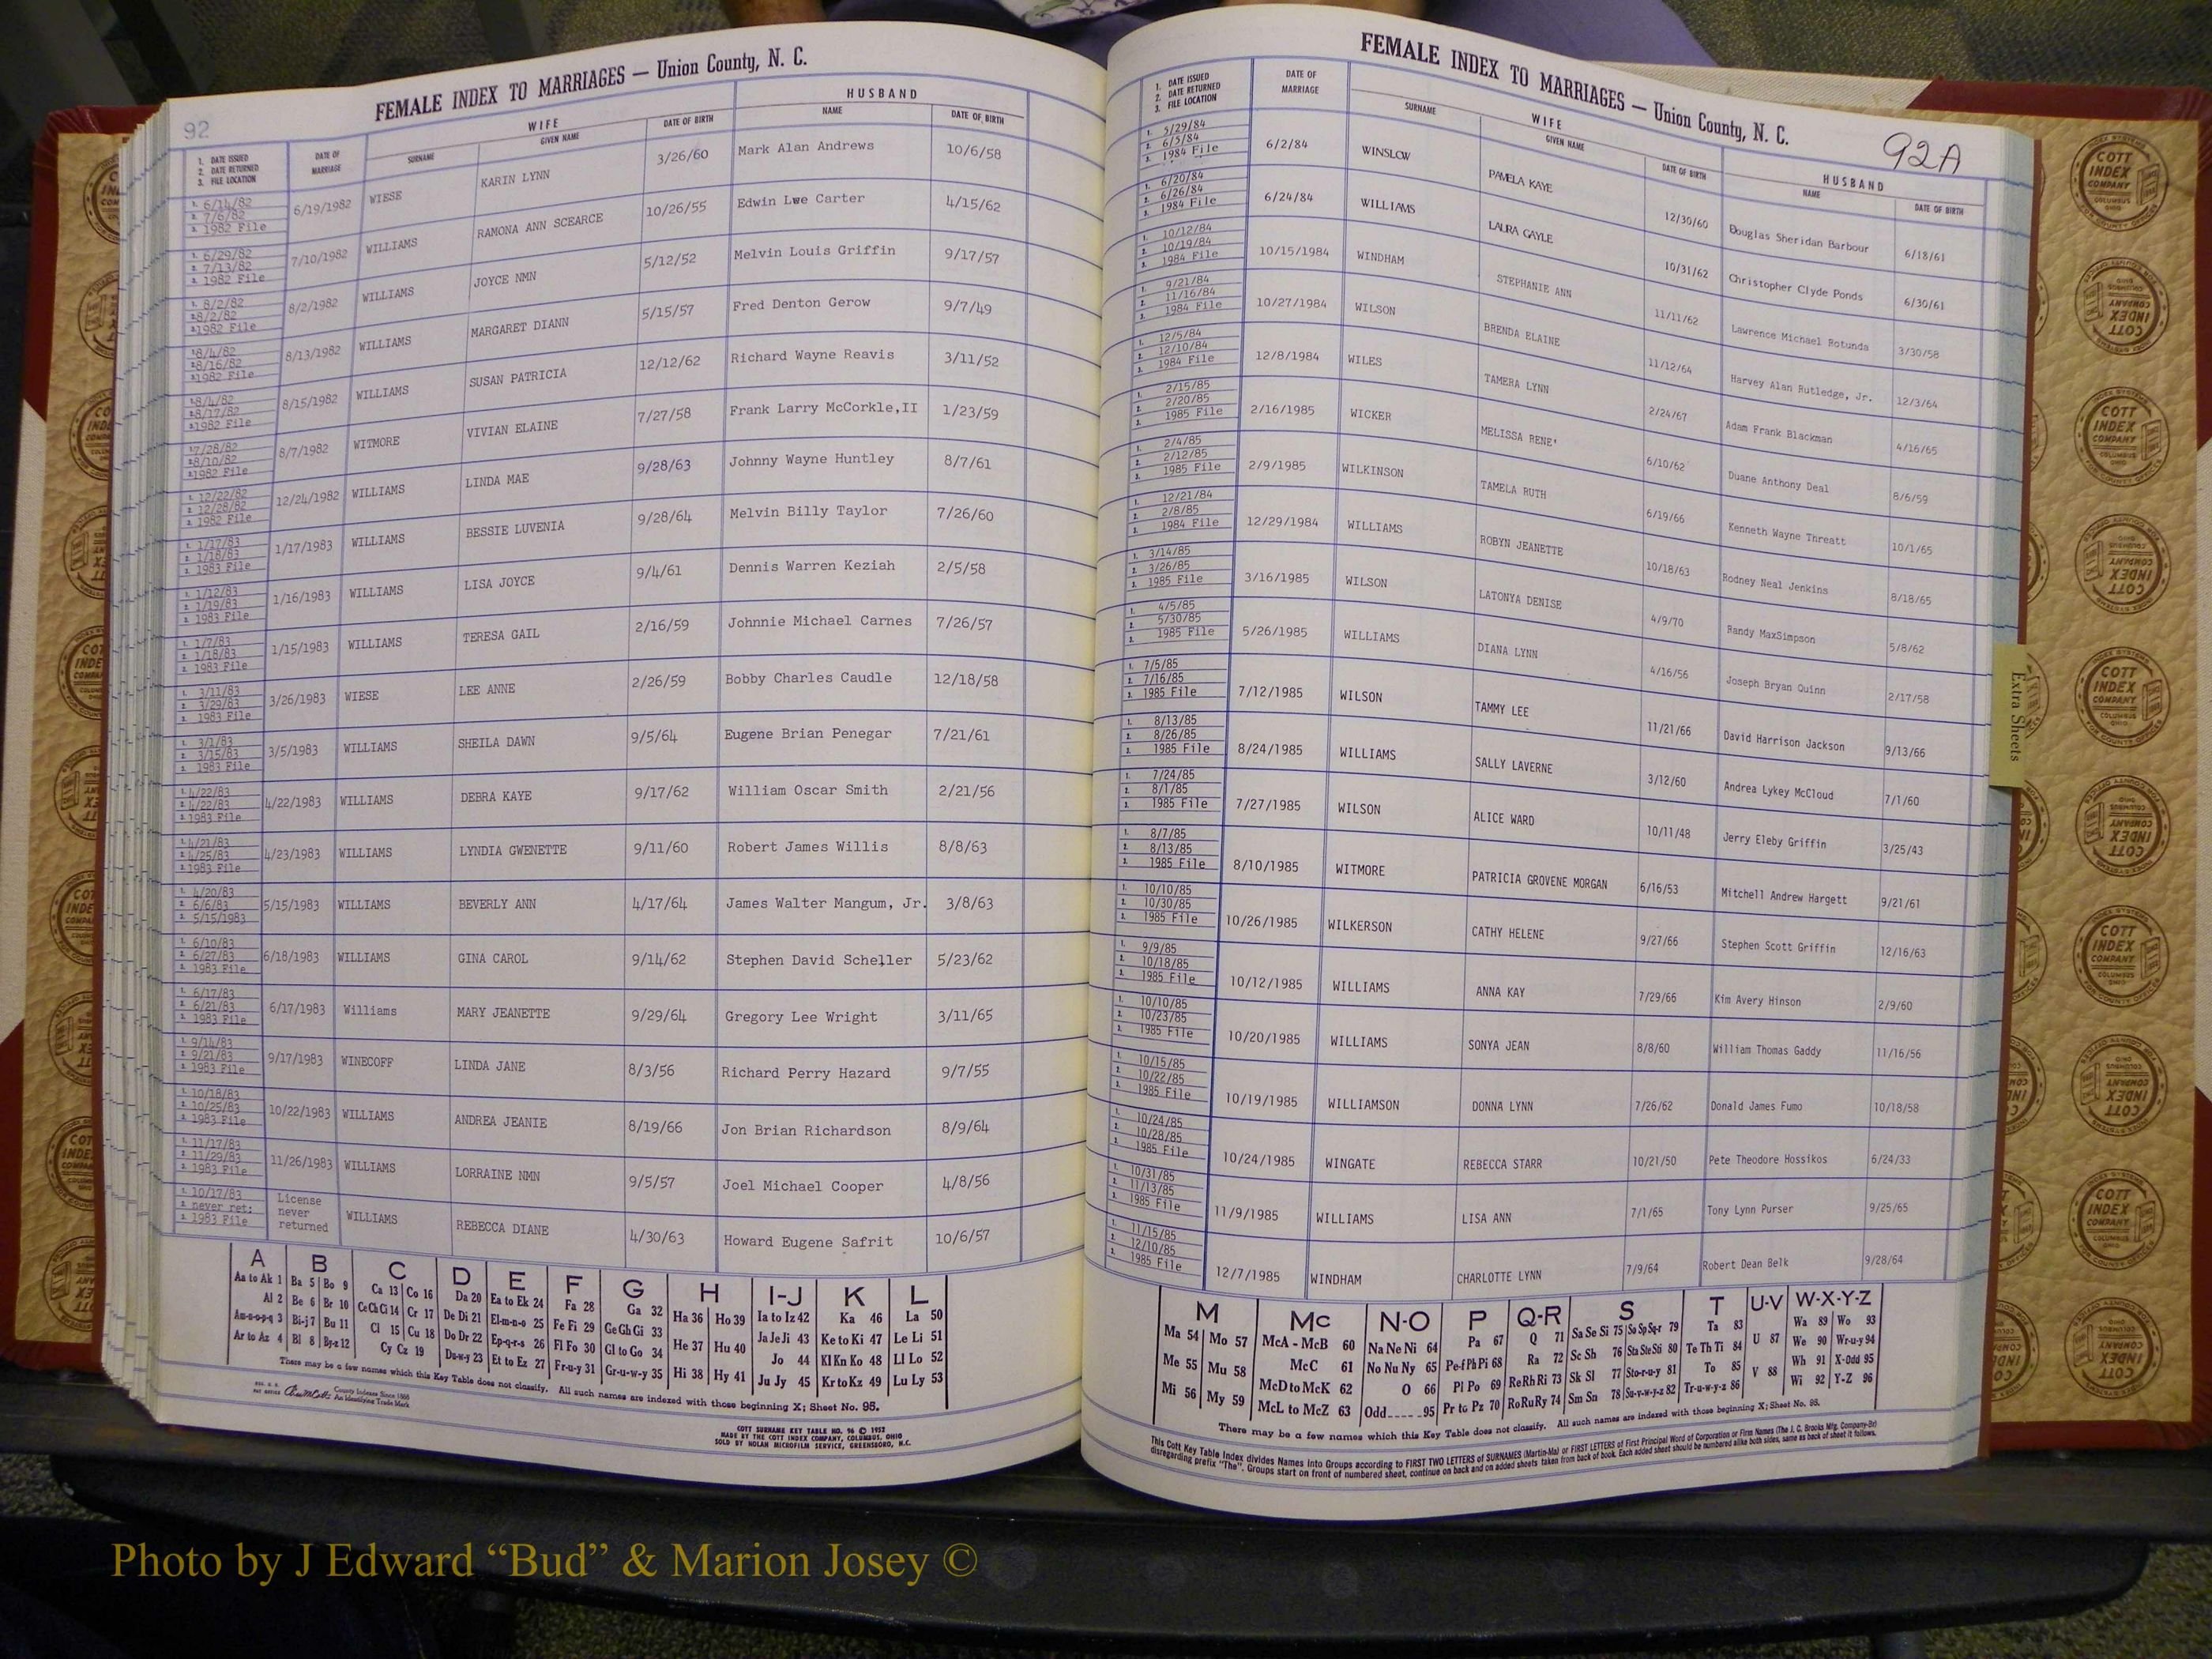 92
FEMALE INDEX TO MARRIAGES — Union County, N. C.
1. DATE ISSUED 2. DATE RETURNED 3. FILE LOCATION DATE OF MARRIAGE WIFE SURNAME GIVEN NAME DATE OF BIRTH HUSBAND NAME DATE OF BIRTH
1. 6/14/82 2. 7/6/82 3. 1982 File 6/19/1982 WIESE KARIN LYNN 3/26/60 Mark Alan Andrews 10/6/58
1. 6/29/82 2. 7/13/82 3. 1982 File 7/10/1982 WILLIAMS RAMONA ANN SCEARCE 10/26/55 Edwin Lwe Carter 4/15/62
1. 8/2/82 2. 8/2/82 3. 1982 File 8/2/1982 WILLIAMS JOYCE NMN 5/12/52 Melvin Louis Griffin 9/17/57
1. 8/4/82 2. 8/16/82 3. 1982 File 8/13/1982 WILLIAMS MARGARET DIANN 5/15/57 Fred Denton Gerow 9/7/49
1. 8/4/82 2. 8/17/82 3. 1982 File 8/15/1982 WILLIAMS SUSAN PATRICIA 12/12/62 Richard Wayne Reavis 3/11/52
1. 7/28/82 2. 8/10/82 3. 1982 File 8/7/1982 WITMORE VIVIAN ELAINE 7/27/58 Frank Larry McCorkle,II 1/23/59
1. 12/22/82 2. 12/28/82 3. 1982 File 12/24/1982 WILLIAMS LINDA MAE 9/28/63 Johnny Wayne Huntley 8/7/61
1. 1/17/83 2. 1/18/83 3. 1983 File 1/17/1983 WILLIAMS BESSIE LUVENIA 9/28/64 Melvin Billy Taylor 7/26/60
1. 1/12/83 2. 1/19/83 3. 1983 File 1/16/1983 WILLIAMS LISA JOYCE 9/4/61 Dennis Warren Keziah 2/5/58
1. 1/7/83 2. 1/18/83 3. 1983 File 1/15/1983 WILLIAMS TERESA GAIL 2/16/59 Johnnie Michael Carnes 7/26/57
1. 3/11/83 2. 3/29/83 3. 1983 File 3/26/1983 WIESE LEE ANNE 2/26/59 Bobby Charles Caudle 12/18/58
1. 3/1/83 2. 3/15/83 3. 1983 File 3/5/1983 WILLIAMS SHEILA DAWN 9/5/64 Eugene Brian Penegar 7/21/61
1. 4/22/83 2. 4/22/83 3. 1983 File 4/22/1983 WILLIAMS DEBRA KAYE 9/17/62 William Oscar Smith 2/21/56
1. 4/21/83 2. 4/25/83 3. 1983 File 4/23/1983 WILLIAMS LYNDIA GWENETTE 9/11/60 Robert James Willis 8/8/63
1. 4/20/83 2. 6/6/83 3. 5/15/1983 5/15/1983 WILLIAMS BEVERLY ANN 4/17/64 James Walter Mangum, Jr. 3/8/63
1. 6/10/83 2. 6/27/83 3. 1983 File 6/18/1983 WILLIAMS GINA CAROL 9/14/62 Stephen David Scheller 5/23/62
1. 6/17/83 2. 6/21/83 3. 1983 File 6/17/1983 Williams MARY JEANETTE 9/29/64 Gregory Lee Wright 3/11/65
1. 9/14/83 2. 9/21/83 3. 1983 File 9/17/1983 WINECOFF LINDA JANE 8/3/56 Richard Perry Hazard 9/7/55
1. 10/18/83 2. 10/25/83 3. 1983 File 10/22/1983 WILLIAMS ANDREA JEANIE 8/19/66 Jon Brian Richardson 8/9/64
1. 11/17/83 2. 11/29/83 3. 1983 File 11/26/1983 WILLIAMS LORRAINE NMN 9/5/57 Joel Michael Cooper 4/8/56
1. 10/17/83 2. never ret: 3. 1983 File License never returned WILLIAMS REBECCA DIANE 4/30/63 Howard Eugene Safrit 10/6/57
A B C D E F G H I-J K L
Aa to Ak 1 Ba 5 Bo 9 Ca 13 Co 16 Da 20 Ea to Ek 24 Fa 28 Ga 32 Ha 36 Ho 39 Ia to Iz 42 Ka 46 La 50
Al 2 Be 6 Br 10 Ce Ch Ci 14 Cr 17 De Di 21 El-m-n-o 25 Fe Fi 29 Ge Gh Gi 33 He 37 Hu 40 Ja Je Ji 43 Ke to Ki 47 Le Li 51
Am-n-o-p-q 3 Bi-j 7 Bu 11 Cl 15 Cu 18 Do Dr 22 Ep-q-r-s 26 Fl Fo 30 Gl to Go 34 Hi 38 Hy 41 Jo 44 Kl Kn Ko 48 Ll Lo 52
Ar to Az 4 Bl 8 By-z 12 Cy Cz 19 Du-w-y 23 Et to Ez 27 Fr-u-y 31 Gr-u-w-y 35 Ju Jy 45 Kr to Kz 49 Lu Ly 53
There may be a few names which this Key Table does not classify. All such names are indexed with those beginning X; Sheet No. 95.
County Indexes Since 1888
An Identifying Trade Mark
COTT SURNAME KEY TABLE NO. 96 © 1953
MADE BY THE COTT INDEX COMPANY, COLUMBUS, OHIO
SOLD BY NOLAN MICROFILM SERVICE, GREENSBORO, N.C.
FEMALE INDEX TO MARRIAGES — Union County, N. C.
92A
1. DATE ISSUED 2. DATE RETURNED 3. FILE LOCATION DATE OF MARRIAGE WIFE SURNAME GIVEN NAME DATE OF BIRTH HUSBAND NAME DATE OF BIRTH
1. 5/29/84 2. 6/5/84 3. 1984 File 6/2/84 WINSLOW PAMELA KAYE 12/30/60 Douglas Sheridan Barbour 6/18/61
1. 6/20/84 2. 6/26/84 3. 1984 File 6/24/84 WILLIAMS LAURA GAYLE 10/31/62 Christopher Clyde Ponds 6/30/61
1. 10/12/84 2. 10/19/84 3. 1984 File 10/15/1984 WINDHAM STEPHANIE ANN 11/11/62 Lawrence Michael Rotunda 3/30/58
1. 9/21/84 2. 11/16/84 3. 1984 File 10/27/1984 WILSON BRENDA ELAINE 11/12/64 Harvey Alan Rutledge, Jr. 12/3/64
1. 12/5/84 2. 12/10/84 3. 1984 File 12/8/1984 WILES TAMERA LYNN 2/24/67 Adam Frank Blackman 4/16/65
1. 2/15/85 2. 2/20/85 3. 1985 File 2/16/1985 WICKER MELISSA RENE' 6/10/62 Duane Anthony Deal 8/6/59
1. 2/4/85 2. 2/12/85 3. 1985 File 2/9/1985 WILKINSON TAMELA RUTH 6/19/66 Kenneth Wayne Threatt 10/1/65
1. 12/21/84 2. 2/8/85 3. 1984 File 12/29/1984 WILLIAMS ROBYN JEANETTE 10/18/63 Rodney Neal Jenkins 8/18/65
1. 3/14/85 2. 3/26/85 3. 1985 File 3/16/1985 WILSON LATONYA DENISE 4/9/70 Randy MaxSimpson 5/8/62
1. 4/5/85 2. 5/30/85 3. 1985 File 5/26/1985 WILLIAMS DIANA LYNN 4/16/56 Joseph Bryan Quinn 2/17/58
1. 7/5/85 2. 7/16/85 3. 1985 File 7/12/1985 WILSON TAMMY LEE 11/21/66 David Harrison Jackson 9/13/66
1. 8/13/85 2. 8/26/85 3. 1985 File 8/24/1985 WILLIAMS SALLY LAVERNE 3/12/60 Andrea Lykey McCloud 7/1/60
1. 7/24/85 2. 8/1/85 3. 1985 File 7/27/1985 WILSON ALICE WARD 10/11/48 Jerry Eleby Griffin 3/25/43
1. 8/7/85 2. 8/13/85 3. 1985 File 8/10/1985 WITMORE PATRICIA GROVENE MORGAN 6/16/53 Mitchell Andrew Hargett 9/21/61
1. 10/10/85 2. 10/30/85 3. 1985 File 10/26/1985 WILKERSON CATHY HELENE 9/27/66 Stephen Scott Griffin 12/16/63
1. 9/9/85 2. 10/18/85 3. 1985 File 10/12/1985 WILLIAMS ANNA KAY 7/29/66 Kim Avery Hinson 2/9/60
1. 10/10/85 2. 10/23/85 3. 1985 File 10/20/1985 WILLIAMS SONYA JEAN 8/8/60 William Thomas Gaddy 11/16/56
1. 10/15/85 2. 10/22/85 3. 1985 File 10/19/1985 WILLIAMSON DONNA LYNN 7/26/62 Donald James Fumo 10/18/58
1. 10/24/85 2. 10/28/85 3. 1985 File 10/24/1985 WINGATE REBECCA STARR 10/21/50 Pete Theodore Hossikos 6/24/33
1. 10/31/85 2. 11/13/85 3. 1985 File 11/9/1985 WILLIAMS LISA ANN 7/1/65 Tony Lynn Purser 9/25/65
1. 11/15/85 2. 12/10/85 3. 1985 File 12/7/1985 WINDHAM CHARLOTTE LYNN 7/9/64 Robert Dean Belk 9/28/64
M Mc N-O P Q-R S T U-V W-X-Y-Z
Ma 54 Mo 57 McA - McB 60 Na Ne Ni 64 Pa 67 Q 71 Sa Se Si 75 So Sp Sq-r 79 Ta 83 U 87 Wa 89 Wo 93
Me 55 Mu 58 McC 61 No Nu Ny 65 Pe-f Ph Pi 68 Ra 72 Sc Sh 76 Sta Ste Sti 80 Te Th Ti 84 V 88 We 90 Wr-u-y 94
Mi 56 My 59 McD to McK 62 O 66 Pl Po 69 Re Rh Ri 73 Sk Sl 77 Sto-r-u-y 81 To 85 Wh 91 X-Odd 95
McL to McZ 63 Odd 95 Pr to Pz 70 Ro Ru Ry 74 Sm Sn 78 Su-v-w-y-z 82 Tr-u-w-y-z 86 Wi 92 Y-Z 96
There may be a few names which this Key Table does not classify. All such names are indexed with those beginning X; Sheet No. 95.
This Cott Key Table Index divides Names into Groups according to FIRST TWO LETTERS of SURNAMES (Martin-Ma) or FIRST LETTERS of First Principal Word of Corporation or Firm Names (The J. C. Brooks Mfg. Company-Br)
disregarding prefix "The". Groups start on front of numbered sheet, continue on back and on added sheets taken from back of book. Each added sheet should be numbered alike both sides, same as back of sheet it follows.
Extra Sheets
COTT INDEX COMPANY COLUMBUS OHIO
Photo by J Edward “Bud” & Marion Josey ©